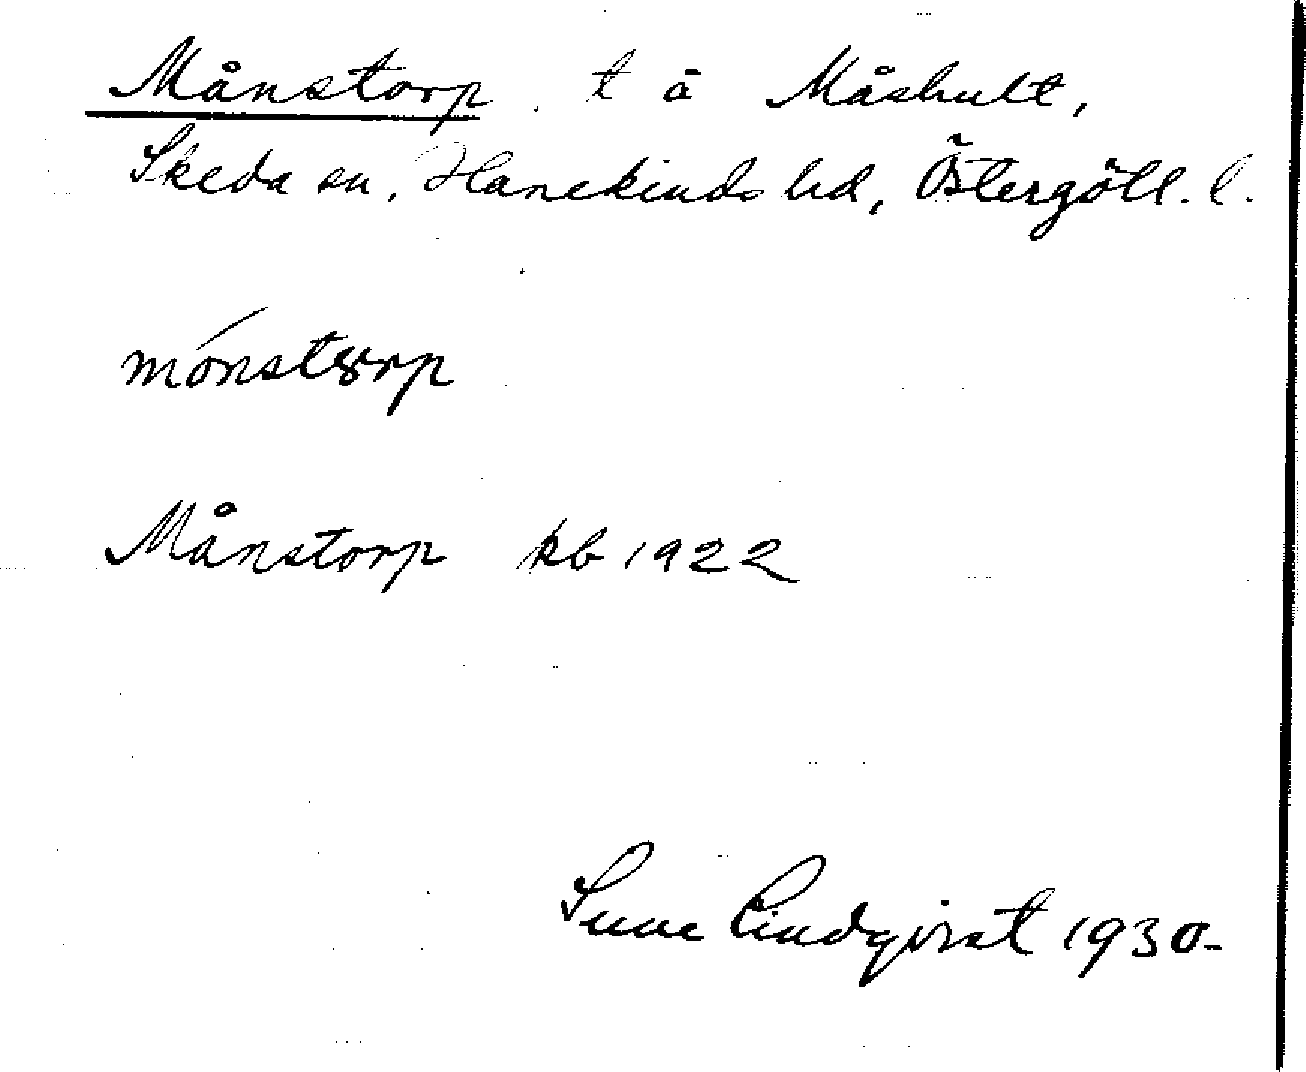 Månstorp t å Måshult,
Skeda sn, Hanekinds hd, Östergötl. l.
mónstorp
Månstorp kb 1922
Sune Lindqvist 1930